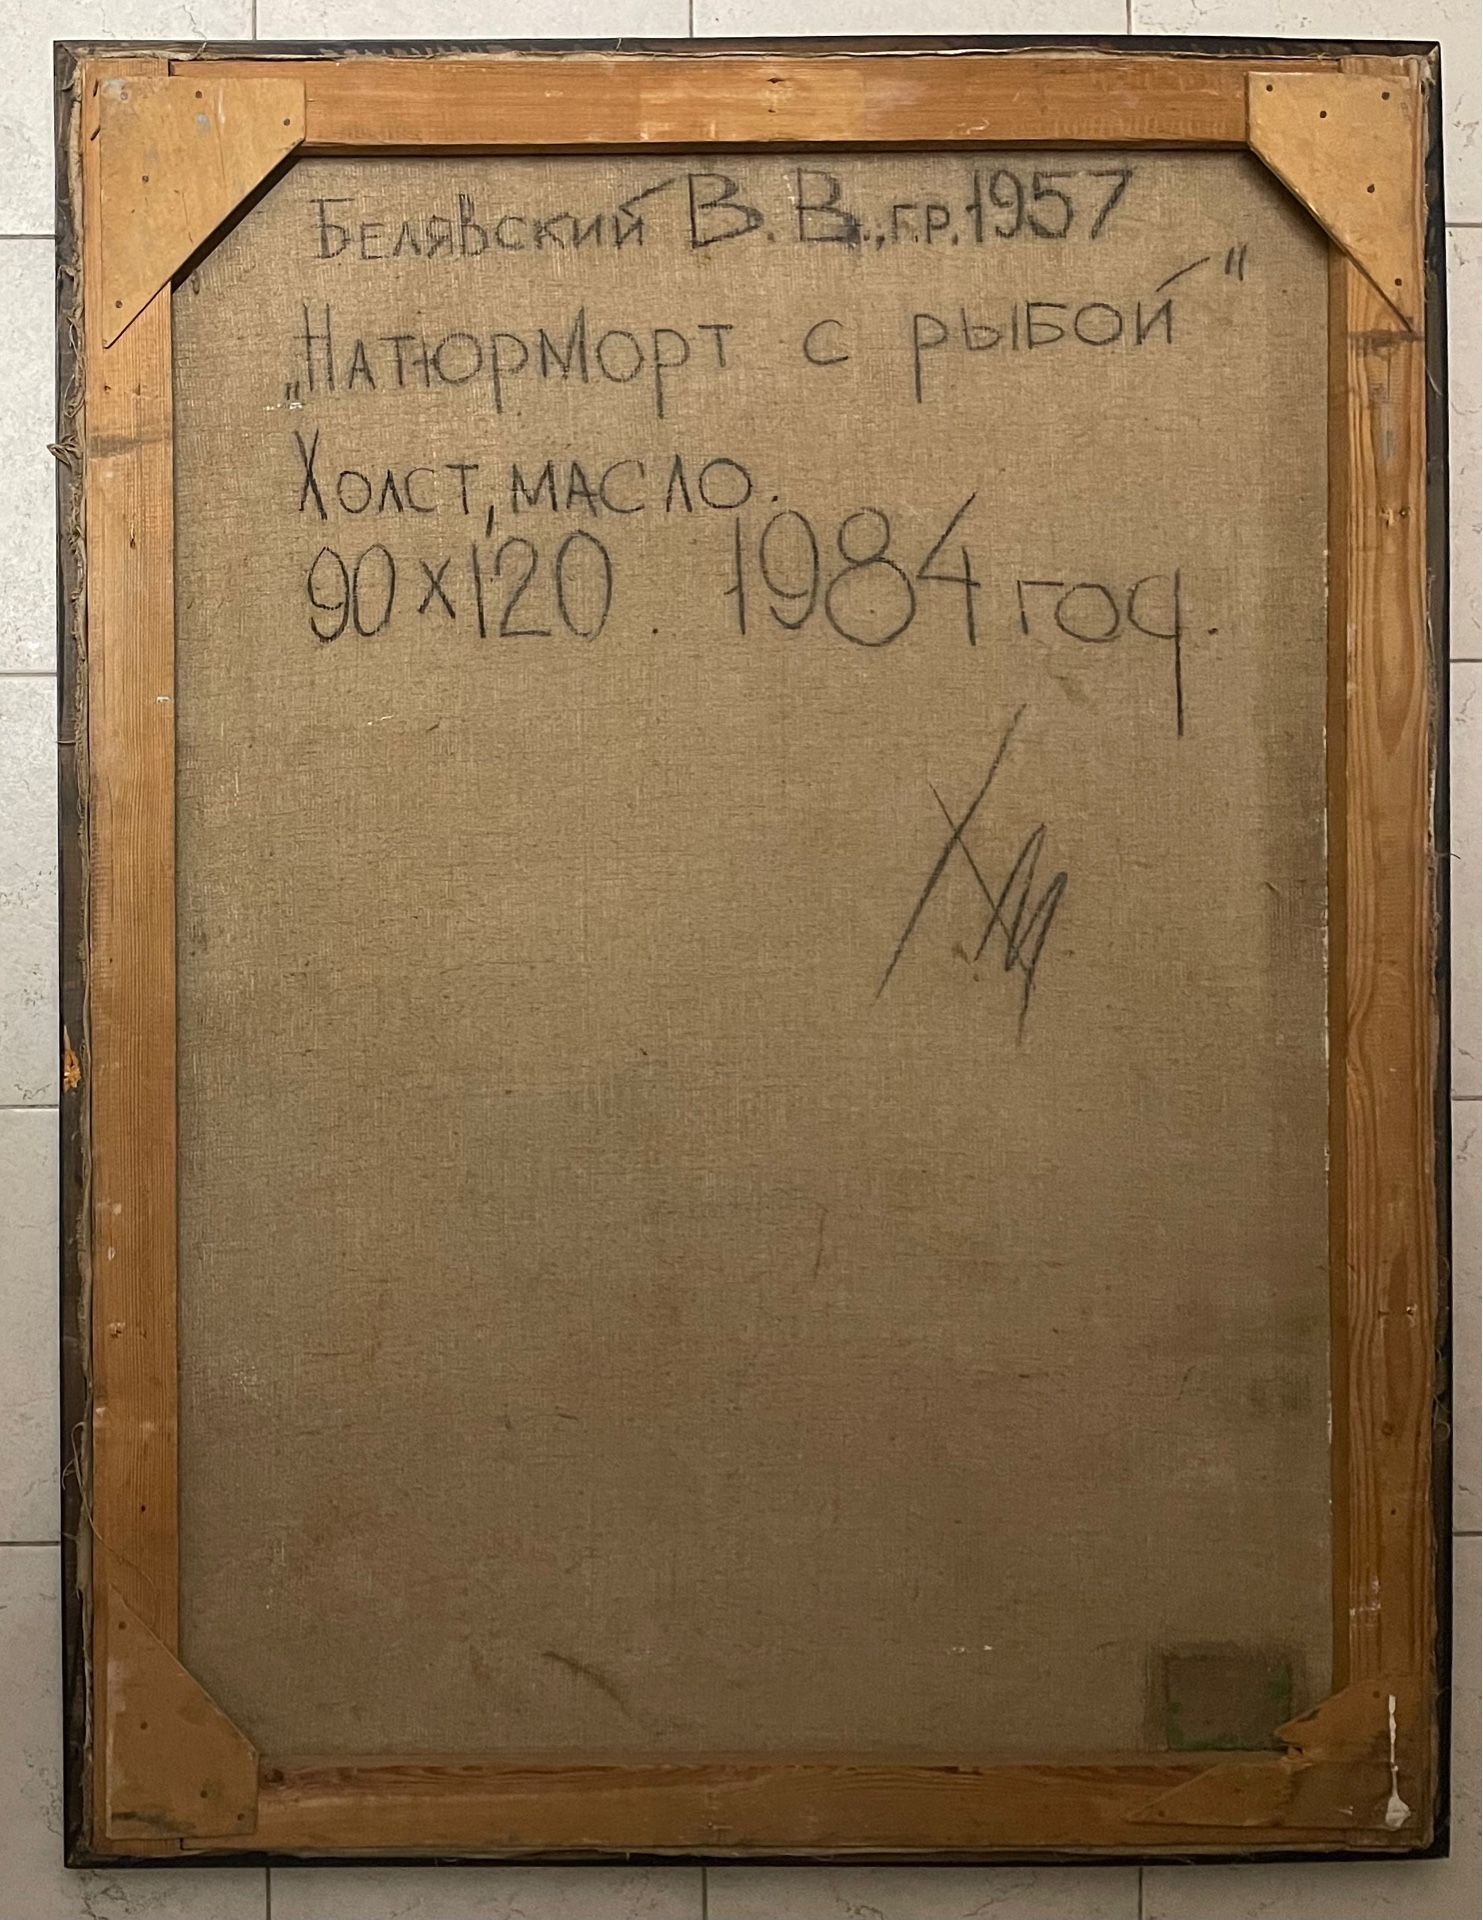 Белявский В.В.,г.р.1957
„Натюрморт с рыбой"
Холст, масло.
90х120. 1984 год.